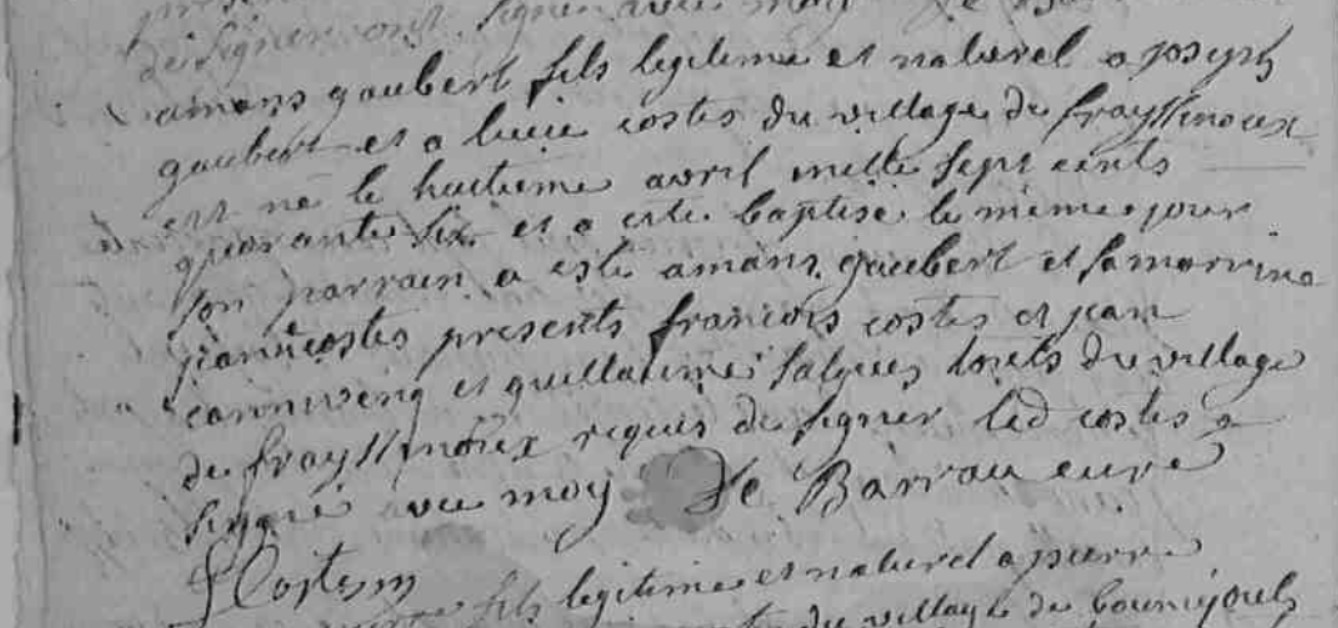 de signer ont signer avec moy
amans gaubert fils legitime et naturel a joseph
gaubert et a lucie costes du village de frayssinoux
est né le huitieme avril mille sept cents
quarante six et a esté baptisé le meme jour
son parrain a esté amans gaubert et sa marrine
jeanne costes presents francois costes et jean
et guillaume salgues touts du village
de frayssinoux requis de signer led costes a
signé avec moy De Barrau curé
F Costes
fils legitime et naturel a pierre
du village de